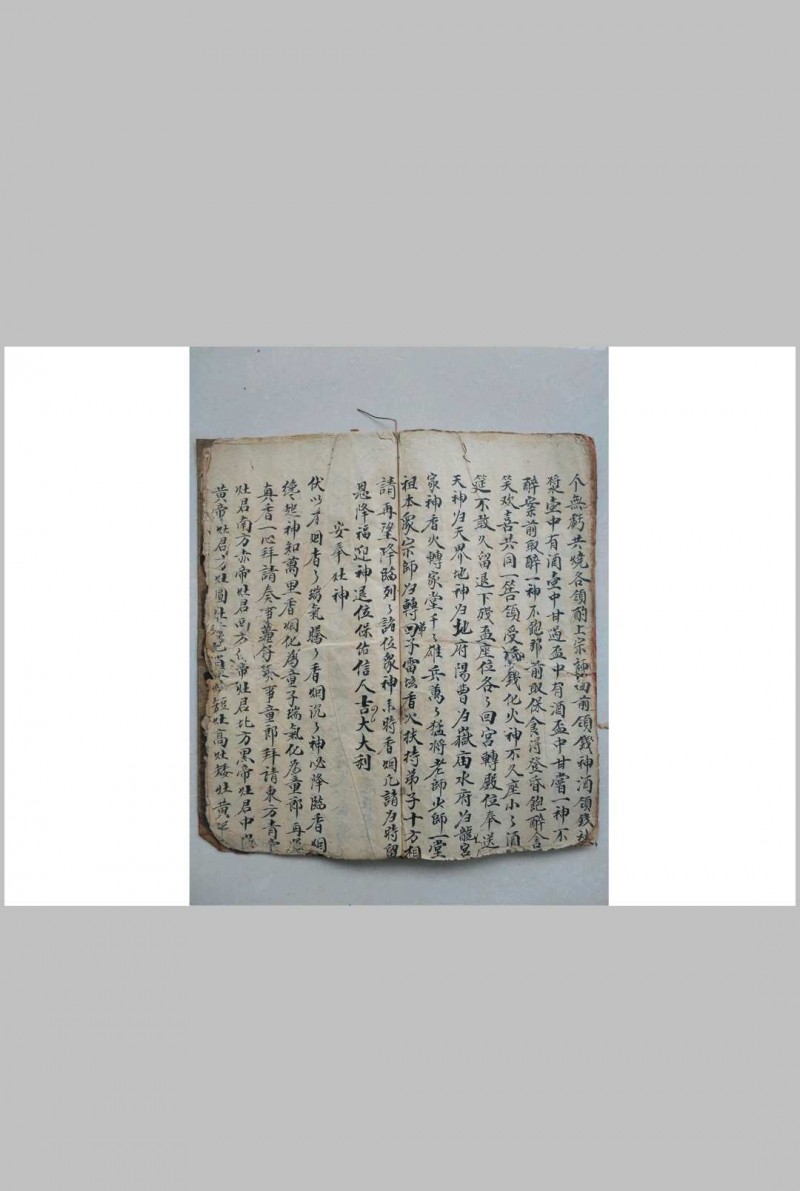 个無虧共燒各領酌上宗師面前領錢神酒領錢
漿壺中有酒壺中甘過盃中有酒盃中甘嘗一神不
醉案前取醉一神不飽那前取保食得登昏飽醉含
笑欢喜共同一答領受錢化火神不久座小々酒
筵不敢久留退下殘盃座位各々回宮轉殿位奉送
天神归天界地神归地府陽曹归嶽庙水府归龍宮
家神香火轉家堂千々雄兵萬々猛將老師火師一堂
祖本眾宗師归轉回弟子雷坛香火扶持弟子十方相
請再望降臨列々諸位眾神未將香烟凡請归時留
恩降福迎神退位保佑信人吉大大利
安奉灶神
伏以才烟者々瑞氣騰々香烟沉々神必降臨香烟
繞起神知萬里香烟化為童子瑞氣化為童郎再
真香一心拜請奏事童子奏事童郎拜請東方青帝
灶君南方赤帝灶君西方白帝灶君北方黑帝灶君中
黃帝灶君方灶圓灶短灶高灶矮灶黃